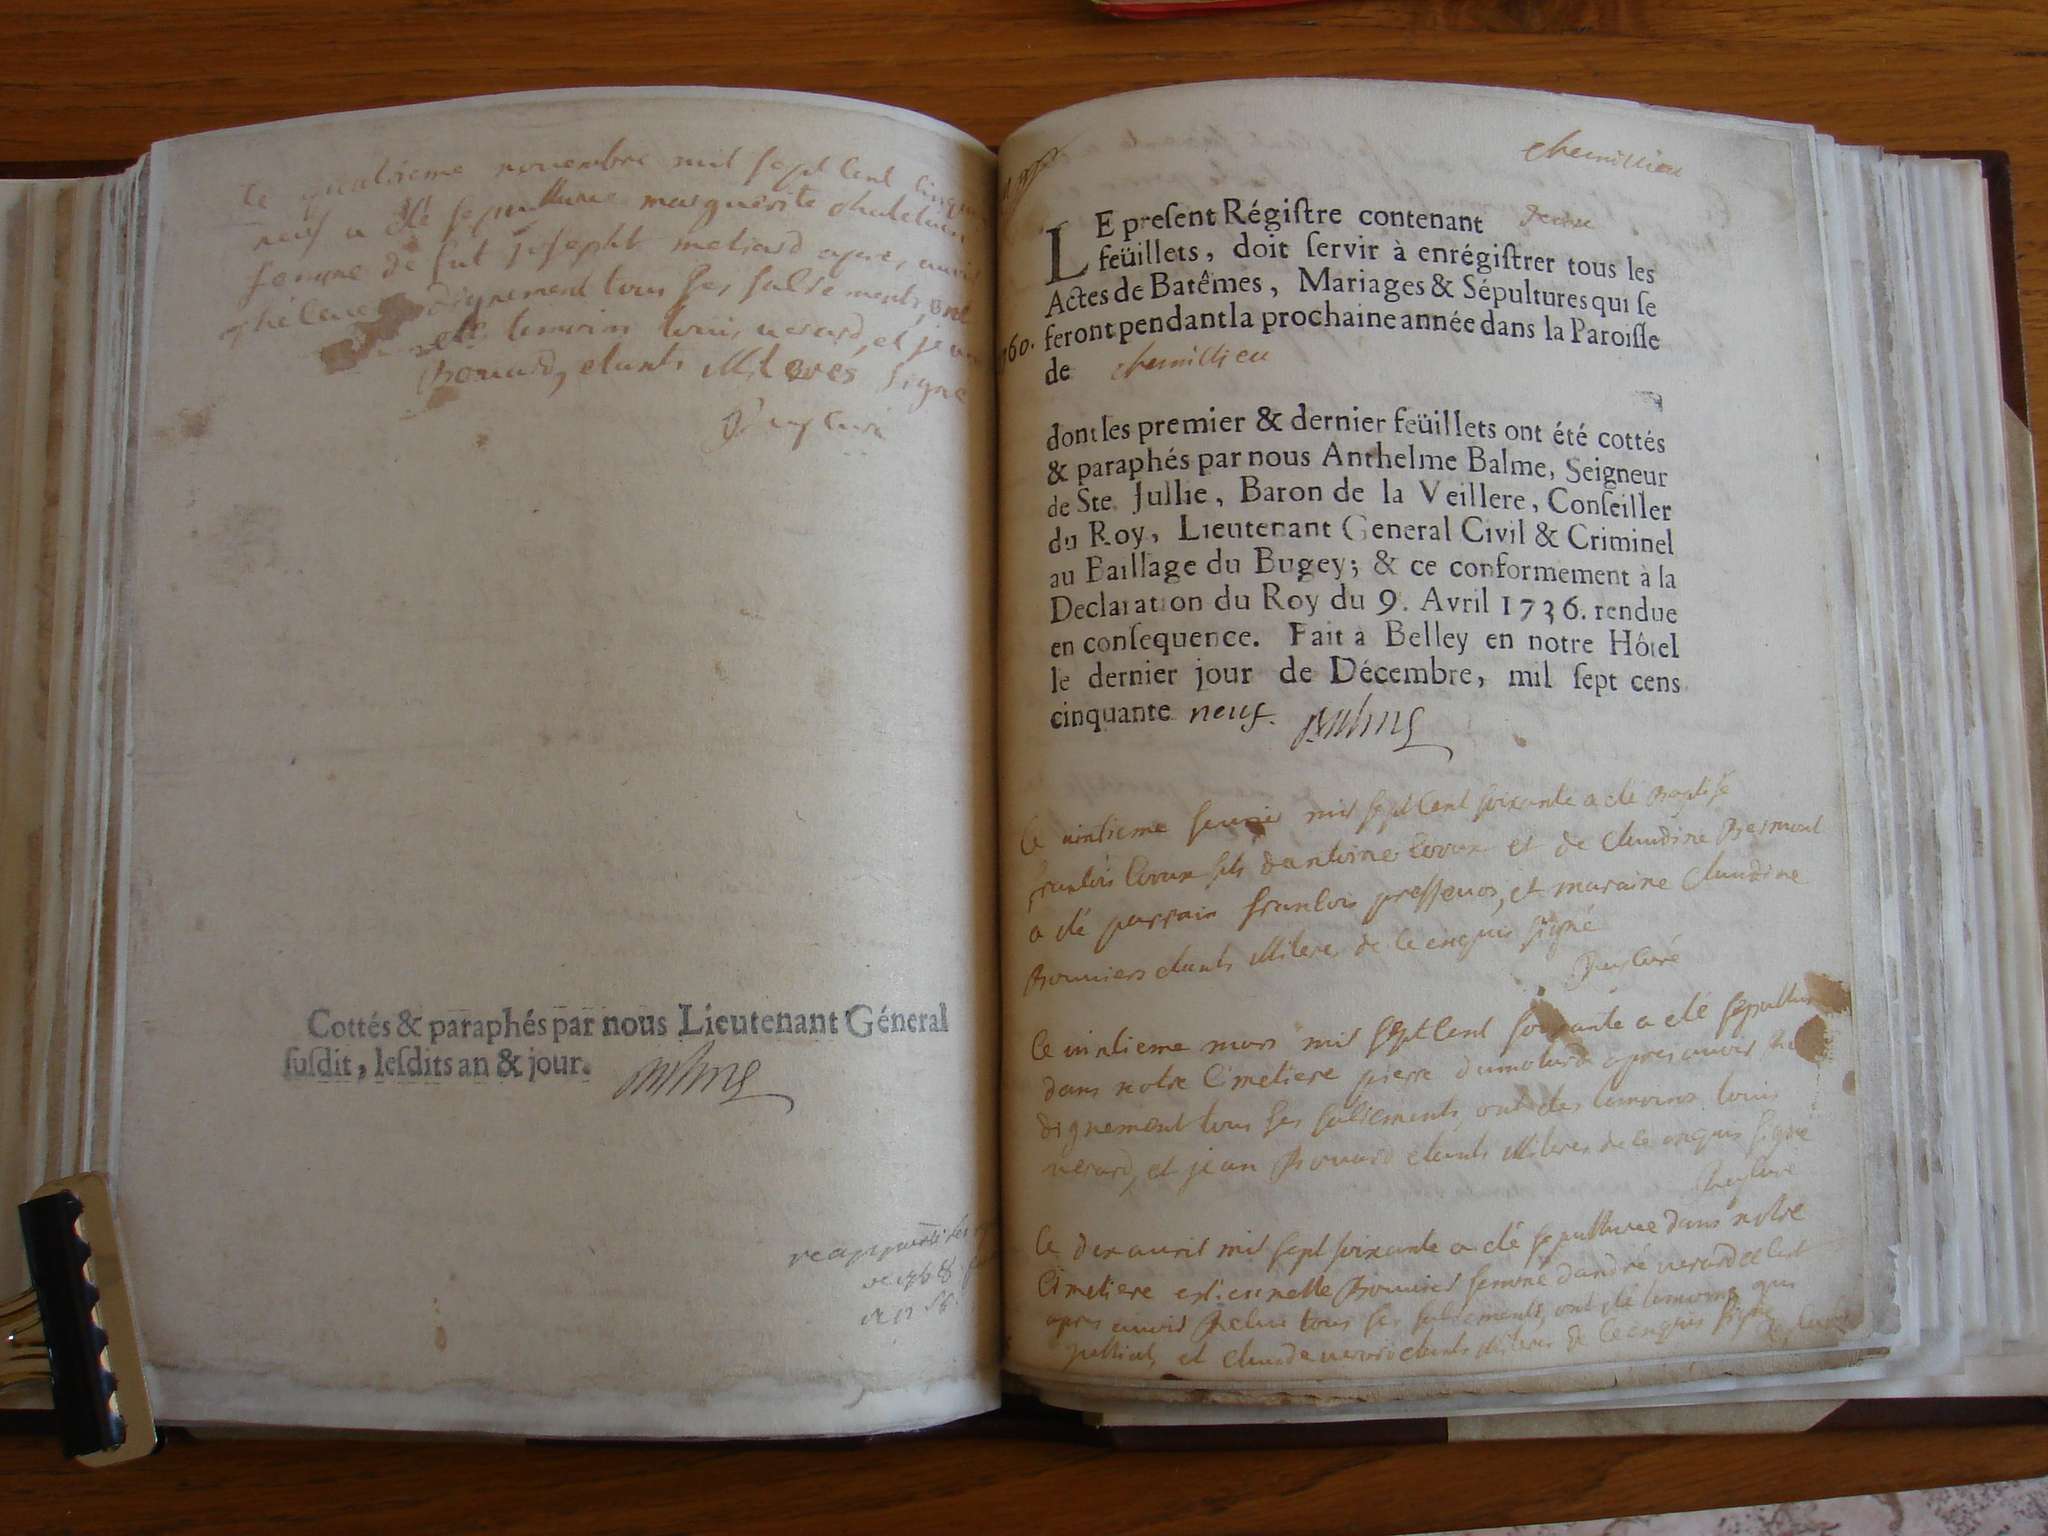 Le quatrieme novembre mil sept cent cinquante
neuf a été sepulturée marguerite
femme de fut josepht metrard apres avoir
dignement tous ses sacrements, ont
été temoins louis verard, et jean
Bouvard, etants illiteres signé
curé
Cottés & paraphés par nous Lieutenant Général
suſdit, leſdits an & jour.
Balme
chemillieu
LE preſent Régiſtre contenant deux
feüillets, doit ſervir à enrégiſtrer tous les
Actes de Batêmes, Mariages & Sépultures qui ſe
feront pendant la prochaine année dans la Paroiſſe
1760.
de chemillieu
dont les premier & dernier feüillets ont été cottés
& paraphés par nous Anthelme Balme, Seigneur
de Ste. Jullie, Baron de la Veillere, Conſeiller
du Roy, Lieutenant General Civil & Criminel
au Baillage du Bugey; & ce conformement à la
Declaration du Roy du 9. Avril 1736. rendue
en conſequence. Fait à Belley en notre Hôtel
le dernier jour de Décembre, mil ſept cens
cinquante neuf. Balme
le vintieme mil sept cent soixante a eté Baptisé
francois fils dantoine et de claudine
a eté parrain francois pressevos, et maraine claudine
etants illiteres de ce enquis signé
curé
le vintieme mars mil sept cent soixante a eté sepulturé
dans notre cimetiere pierre dumolard apres avoir
dignement tous ses sacrements, ont eté temoins louis
verard, et jean Bouvard etants illiteres de ce enquis signé
curé
le dix avril mil sept soixante a eté sepulturée dans notre
cimetiere femme dandré verard
apres avoir Reçue tous ses sacrements, ont eté temoins
et claude verard etants illiteres de ce enquis signé